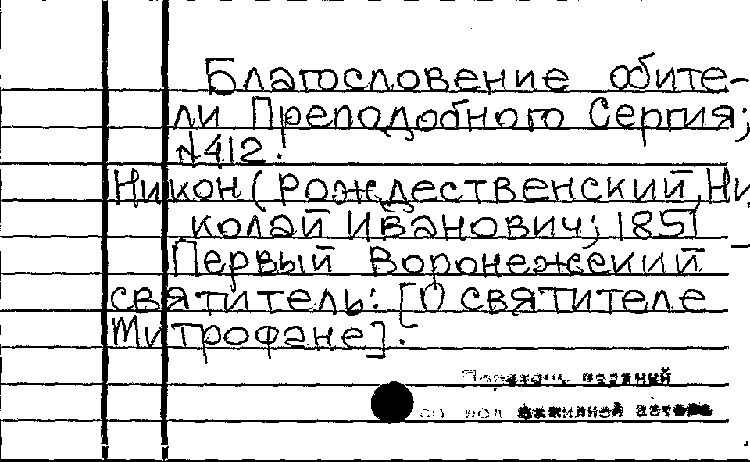 Благословение обите-
ли Преподобного Сергия;
N412.
Никон (Рождественский, Ни
колай Иванович; 1851 –
Первый Воронежский
святитель: [О святителе
Митрофане].